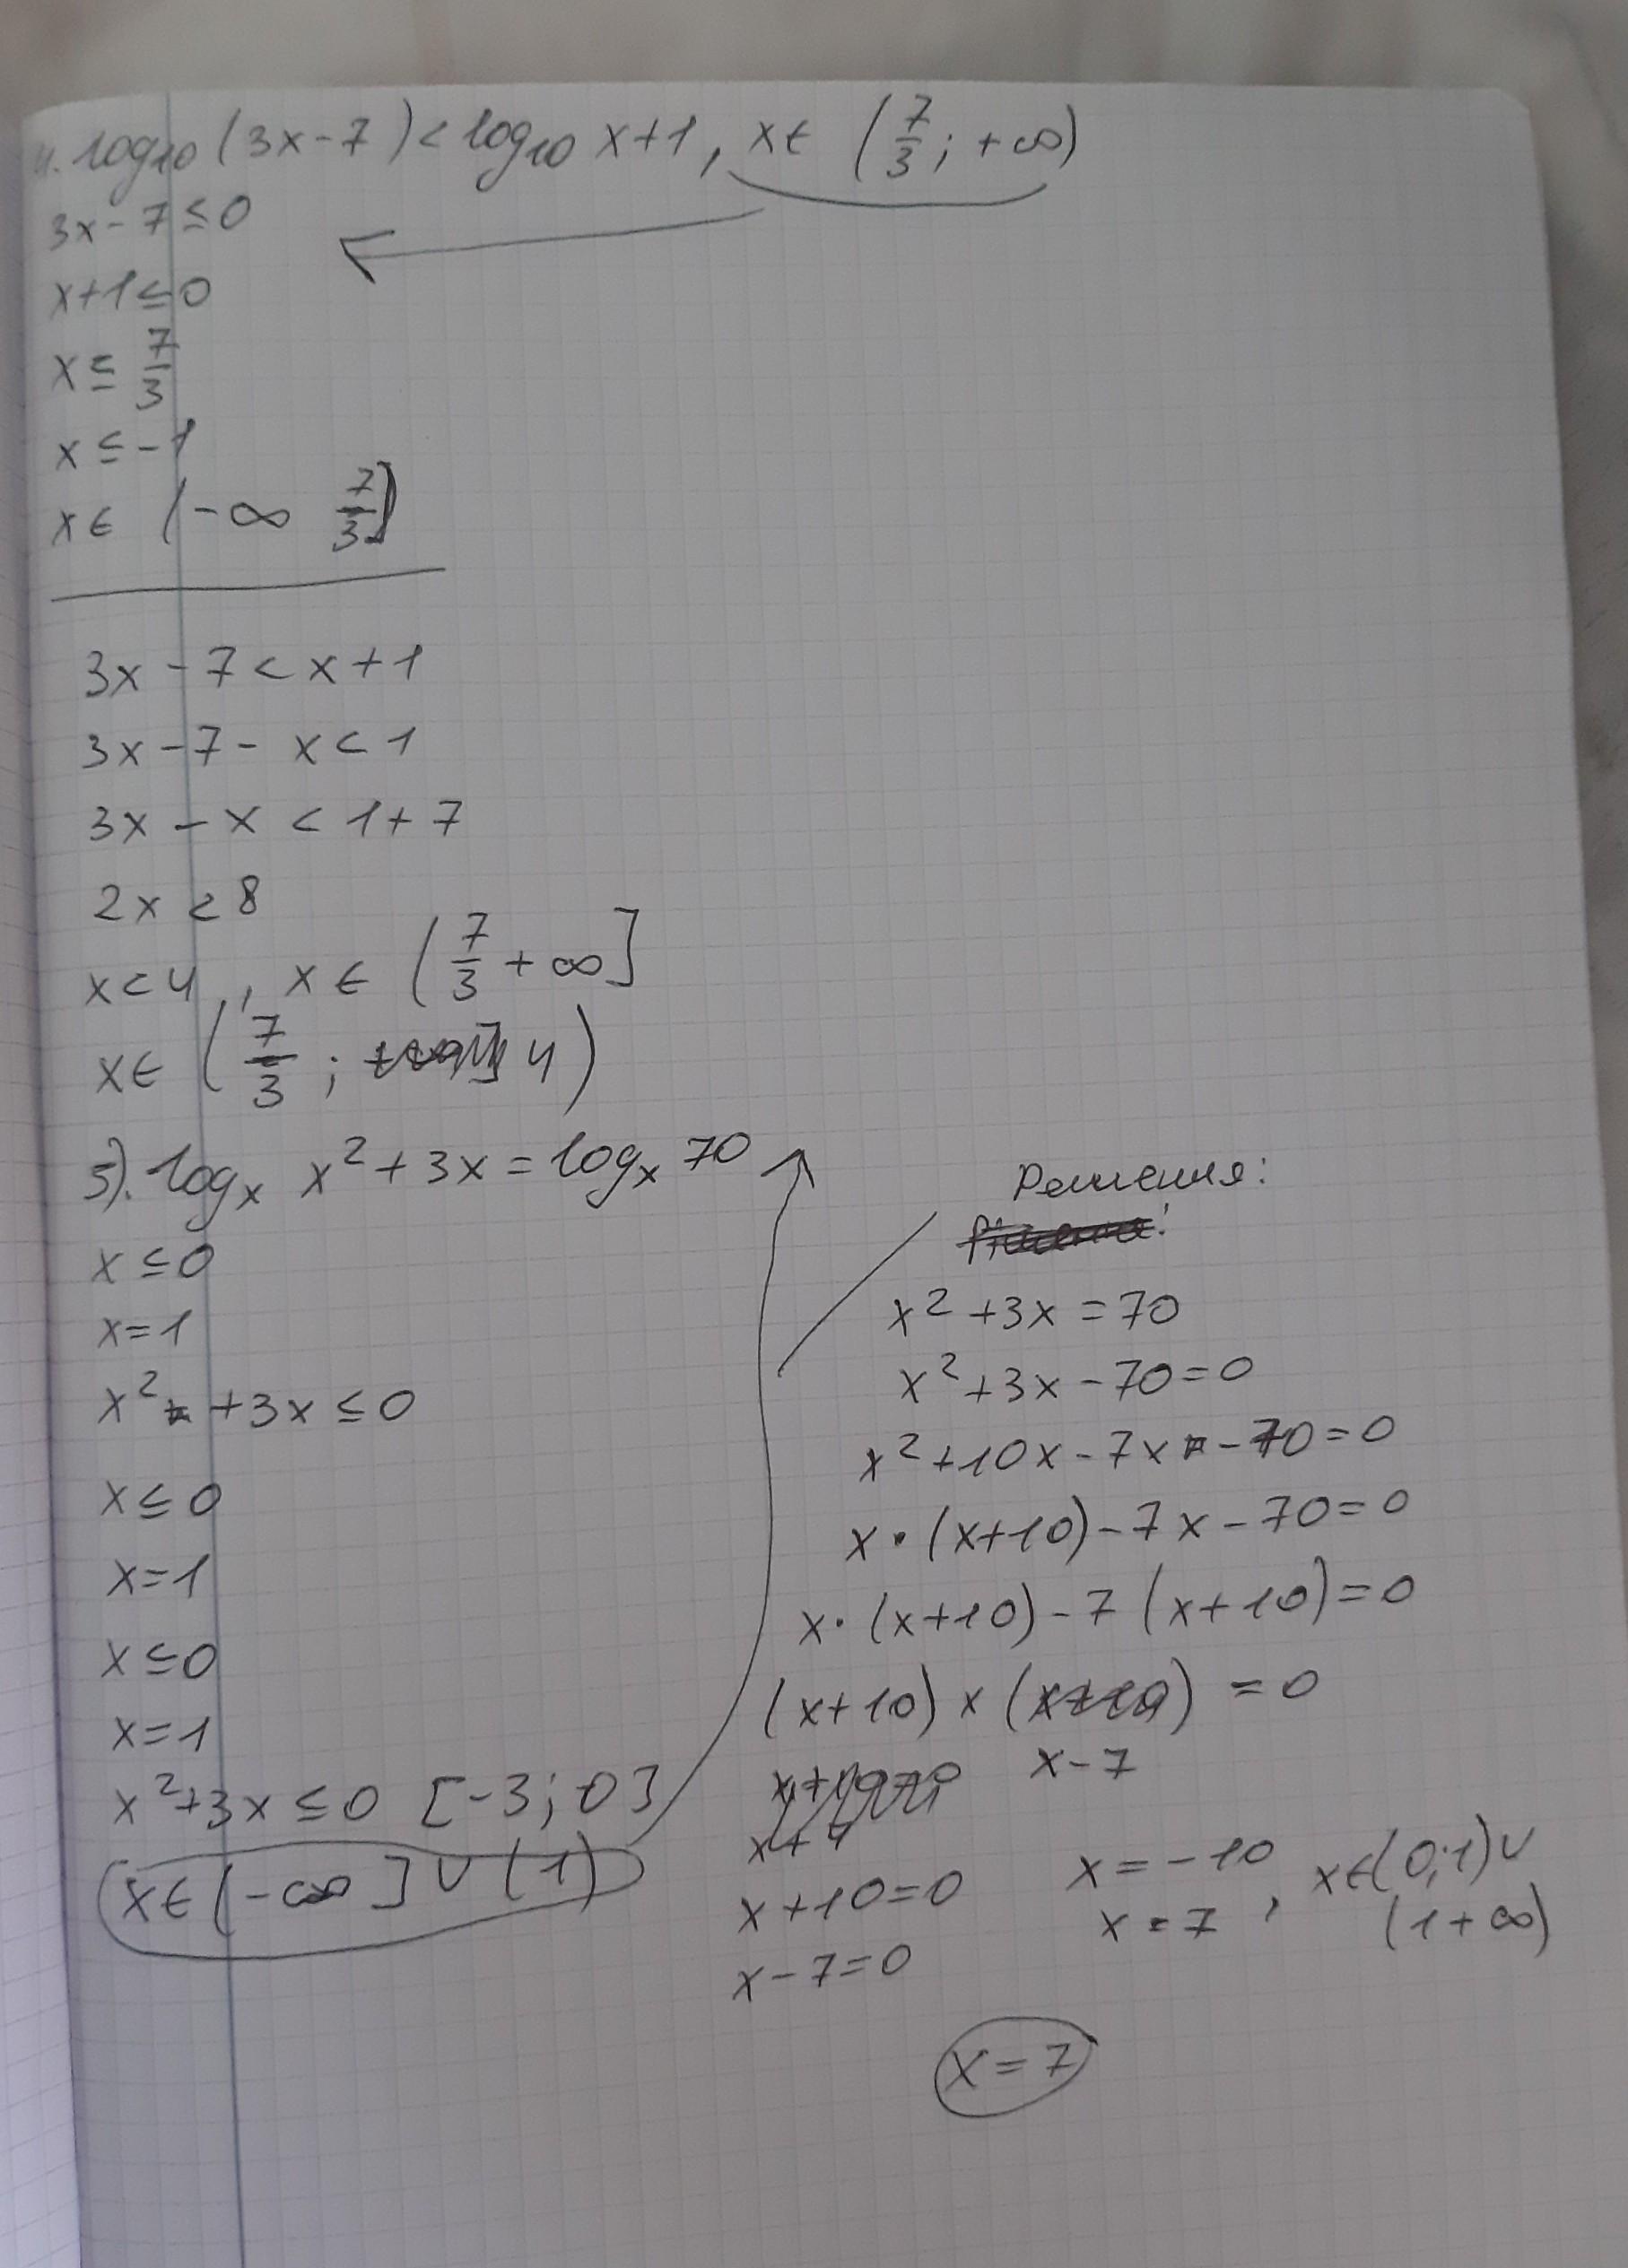 4. log₁₀ (3x-7) < log₁₀ x+1, x∈ (7/3; +∞)
3x-7≤0
x+1≤0
x≤ 7/3
x≤-1
x∈ (-∞ 7/3]
3x-7<x+1
3x-7-x<1
3x-x<1+7
2x<8
x<4, x∈ (7/3 +∞]
x∈ (7/3; 4)
5). logₓ x²+3x=logₓ 70
x≤0
x=1
x² +3x≤0
x≤0
x=1
x≤0
x=1
x²+3x≤0 [-3;0]
x∈(-∞ ]∪(1)
Решения:
x²+3x=70
x²+3x-70=0
x²+10x-7x-70=0
x·(x+10)-7x-70=0
x·(x+10)-7(x+10)=0
(x+10)x( ) =0
x-7
x+4
x+10=0
x-7=0
x=-10
x=7, x∈(0;1)∪
(1+∞)
x=7